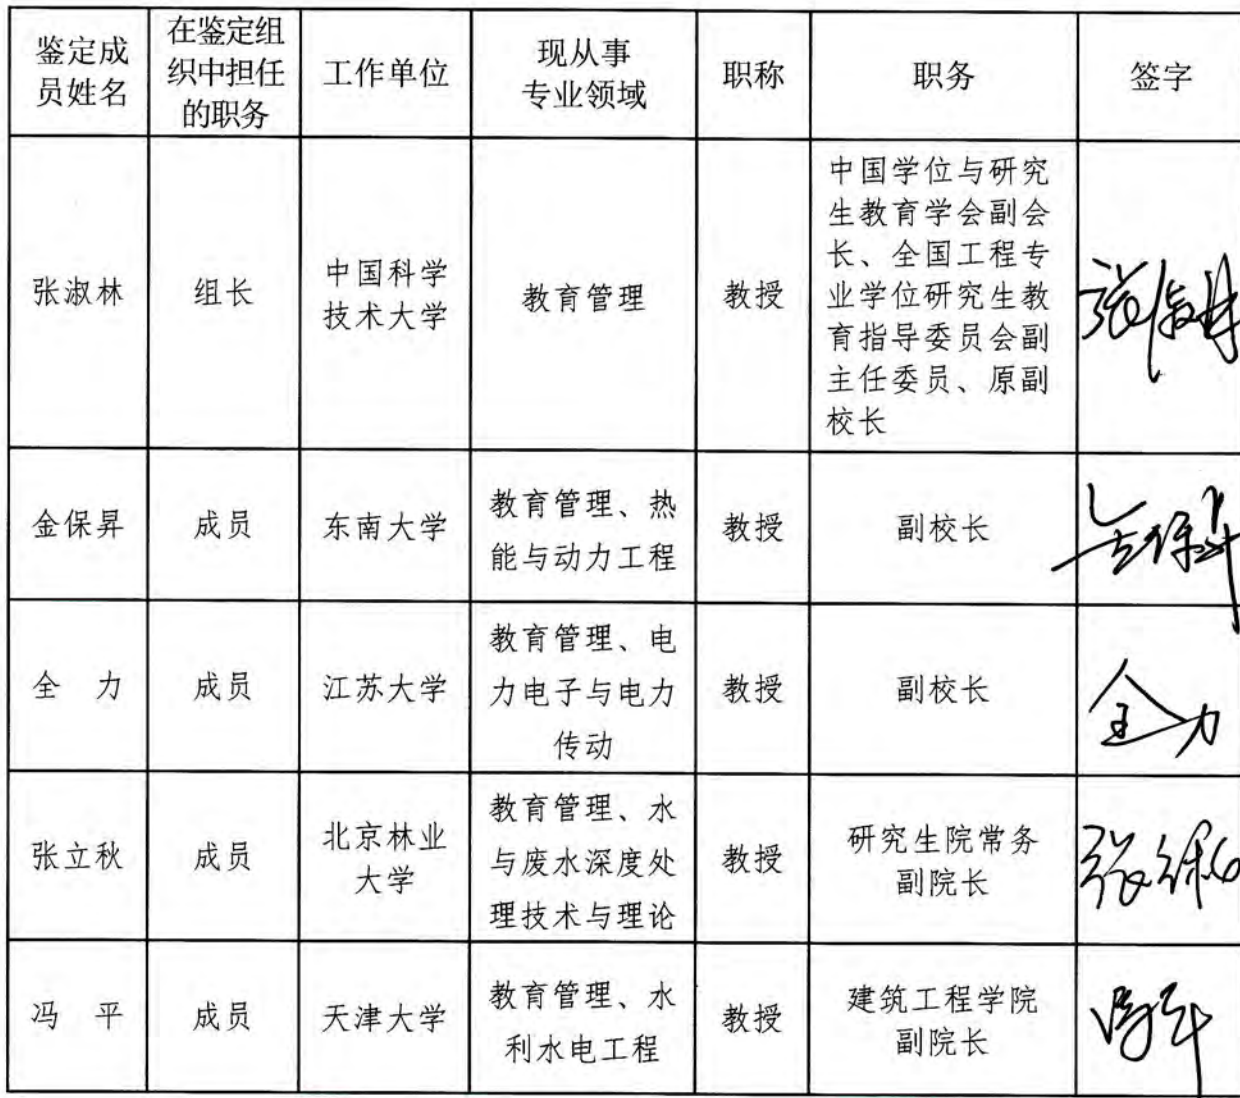 鉴定成
员姓名
在鉴定组
织中担任
的职务
工作单位
现从事
专业领域
职称
职务
签字
张淑林
组长
中国科学
技术大学
教育管理
教授
中国学位与研究
生教育学会副会
长、全国工程专
业学位研究生教
育指导委员会副
主任委员、原副
校长
张淑林
金保昇
成员
东南大学
教育管理、热
能与动力工程
教授
副校长
金保昇
全 力
成员
江苏大学
教育管理、电
力电子与电力
传动
教授
副校长
全力
张立秋
成员
北京林业
大学
教育管理、水
与废水深度处
理技术与理论
教授
研究生院常务
副院长
张立秋
冯 平
成员
天津大学
教育管理、水
利水电工程
教授
建筑工程学院
副院长
冯平